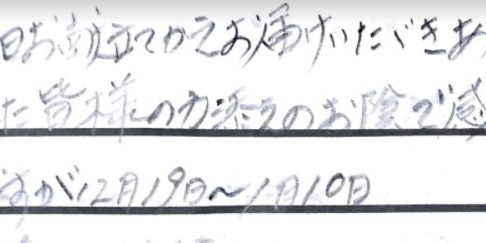 日お献立てかえお届けいただきあ
た皆様の力添えのお陰で感
すが12月19日〜1月10日